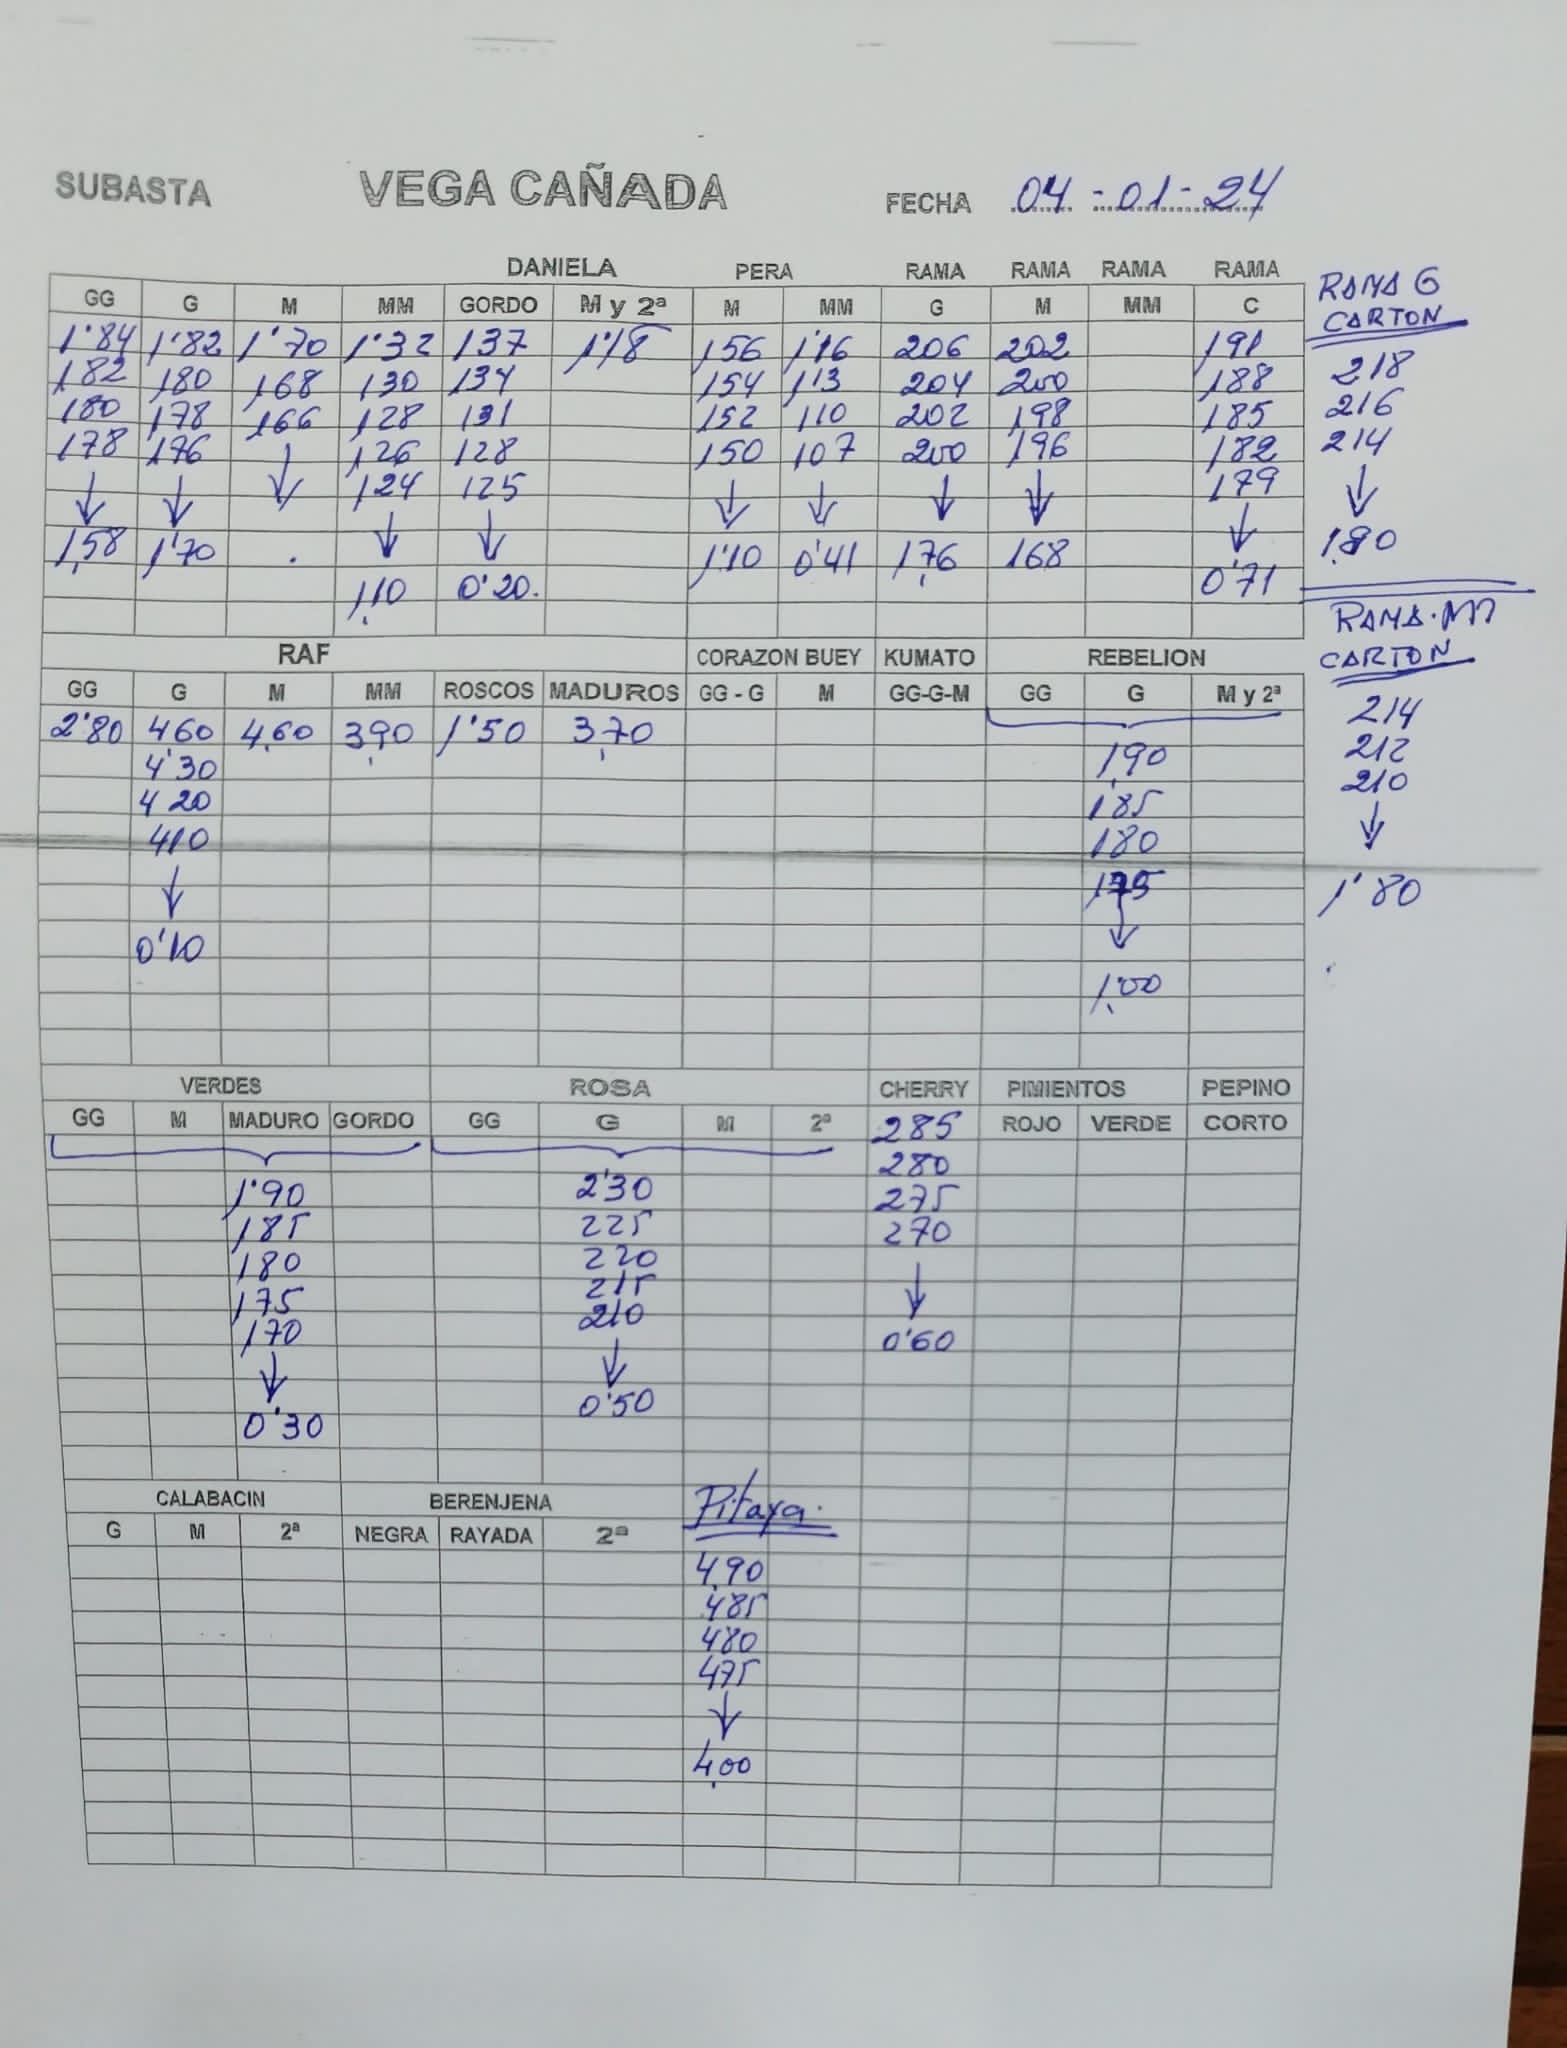 SUBASTA VEGA CAÑADA FECHA 04-01-24
DANIELA PERA RAMA RAMA RAMA RAMA RAMA G
GG G M MM GORDO M y 2ª M MM G M MM C CARTON
1'84 1'82 1'70 1'32 137 1'18 156 1'16 206 202 191 218
182 180 168 130 134 154 113 204 200 188 216
180 178 166 128 131 152 110 202 198 185 214
178 176 ↓ 126 128 150 107 200 196 182 ↓
↓ ↓ 124 125 ↓ ↓ ↓ ↓ 179
1,58 1'70 . ↓ ↓ 1'10 0'41 1,76 168 ↓ 1,90
1,10 0'20. 0'71
RAMA.M
RAF CORAZON BUEY KUMATO REBELION CARTON
GG G M MM ROSCOS MADUROS GG - G M GG-G-M GG G M y 2ª
2'80 460 4,60 3,90 1'50 3,70 214
4'30 1,90 212
4 20 1'85 210
410 180 ↓
↓ 175 1'80
↓
0'10
1,00
VERDES ROSA CHERRY PIMIENTOS PEPINO
GG M MADURO GORDO GG G M 2ª 285 ROJO VERDE CORTO
280
1'90 2'30 275
185 225 270
180 220 ↓
175 215
170 210 0'60
↓ ↓
0'30 0'50
CALABACIN BERENJENA Pitaya.
G M 2ª NEGRA RAYADA 2ª
4,90
485
480
475
↓
4,00